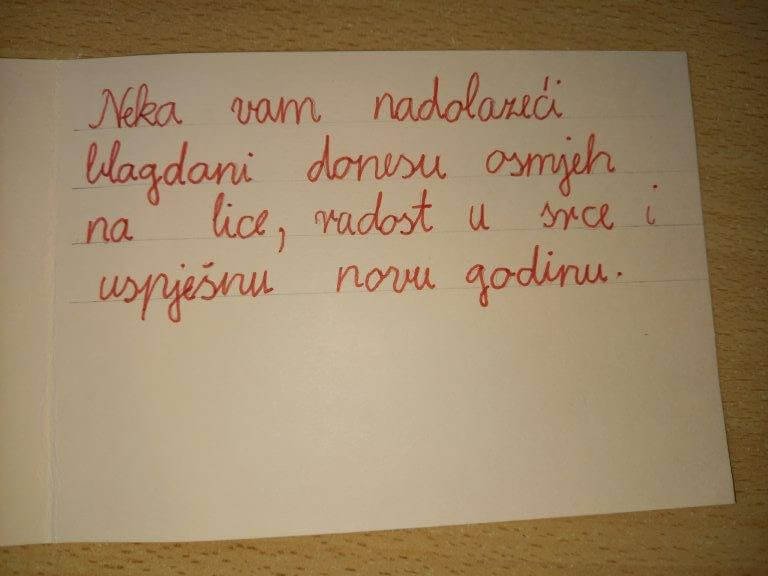 Neka vam nadolazeći
blagdani donesu osmjeh
na lice, radost u srce i
uspješnu novu godinu.